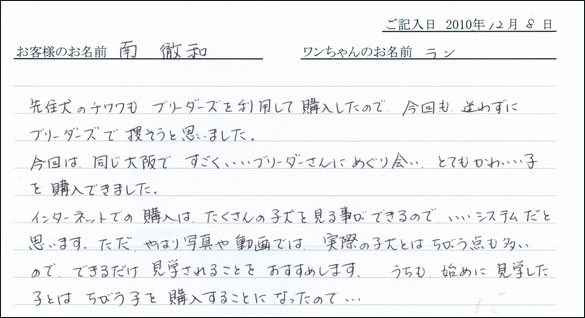 ご記入日 2010年12月8日
お客様のお名前 南 徹和 ワンちゃんのお名前 ラン
先住犬のチワワも ブリーダーズを利用して購入したので、今回も 迷わずに
ブリーダーズで 捜そうと思いました。
今回は、同じ大阪で すごくいいブリーダーさんにめぐり会い、とてもかわいい子
を 購入できました。
インターネットでの 購入は、たくさんの子犬を見る事ができるので、いいシステムだと
思います。ただ、やはり写真や動画では、実際の子犬とは ちがう点も多い
ので、できるだけ 見学されることを おすすめします。 うちも、始めに見学した
子とは ちがう子を 購入することに なったので…